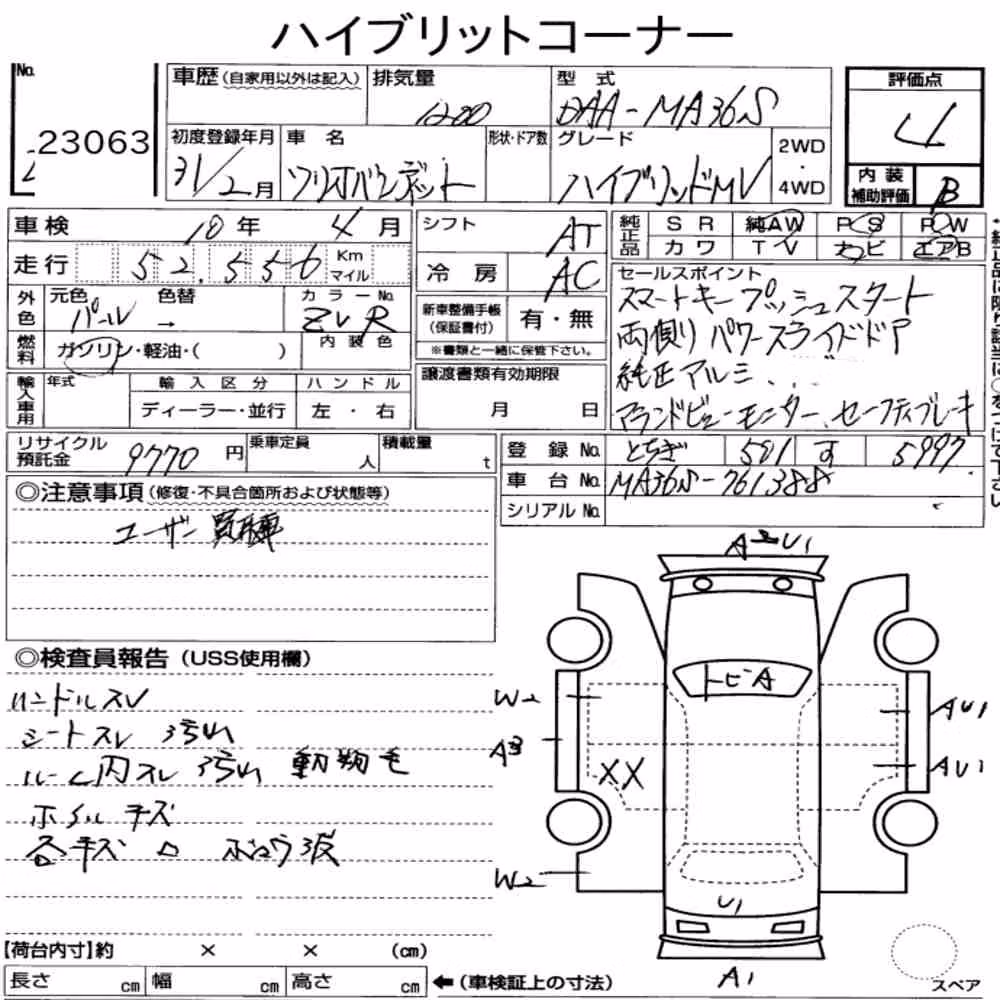 ハイブリットコーナー
No.
23063
車歴 (自家用以外は記入)
排気量
1200
型式
DAA-MA36S
評価点
4
初度登録年月
31/2月
車名
ソリオバンディット
形状・ドア数
グレード
ハイブリッドMV
2WD
・
4WD
内装
補助評価
B
車検
10年 4月
走行
52,556
Km
マイル
シフト
AT
冷房
AC
純正品
SR 純AW PS PW
カワ TV ナビ エアB
外色
元色
パール
色替
→
カラーNo.
ZVR
内装色
燃料
ガソリン・軽油・( )
新車整備手帳
(保証書付)
有・無
※書類と一緒に保管下さい。
セールスポイント
スマートキー プッシュスタート
両側りパワースライドドア
純正アルミ
アランドビューモニター、セーフティブレーキ
輸入車用
年式
輸入区分
ディーラー・並行
ハンドル
左・右
譲渡書類有効期限
月 日
リサイクル
預託金
9770円
乗車定員
人
積載量
t
登録No.
とちぎ 501 す 5997
車台No.
MA36S-761388
シリアルNo.
◎注意事項 (修復・不具合箇所および状態等)
ユーザー買取車
◎検査員報告 (USS使用欄)
ハンドルスレ
シートスレ 汚れ
ルーム内スレ 汚れ 動物毛
ホイルキズ
各キズ 凹 ボコウ波
A2U1
トビA
W2
A3
XX
W2
AU1
AU1
U1
A1
スペア
【荷台内寸】約 × × (cm)
長さ cm 幅 cm 高さ cm
←(車検証上の寸法)